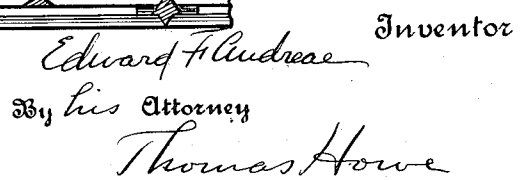 Inventor
Edward F. Andreae
By his Attorney
Thomas Howe